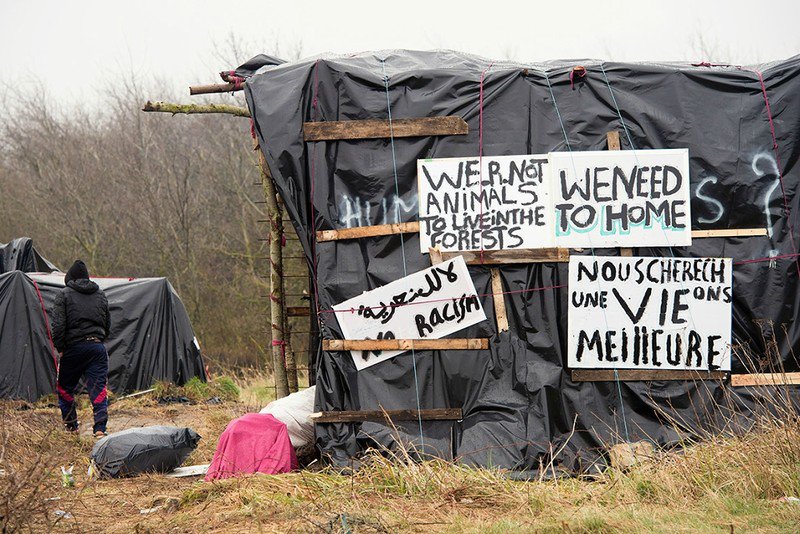 WE.R.NOT
ANIMALS
TO LIVE IN THE
FORESTS
WE NEED
TO HOME
لا للعنصرية
NO RACISM
NOUS CHERECH
UNE VIE ONS
MEIllEURE